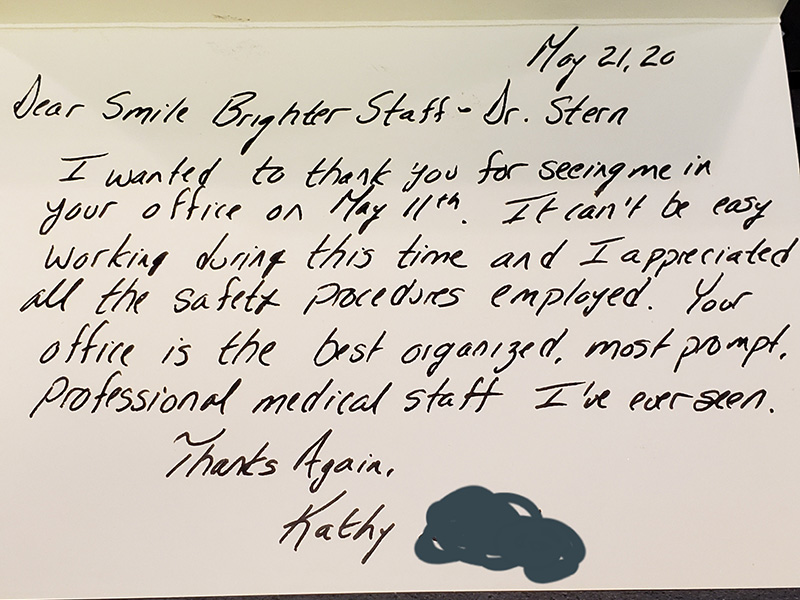 May 21, 20
Dear Smile Brighter Staff - Dr. Stern
I wanted to thank you for seeing me in
your office on May 11th. It can't be easy
working during this time and I appreciated
all the safety procedures employed. Your
office is the best organized, most prompt,
professional medical staff I've ever seen.
Thanks Again,
Kathy